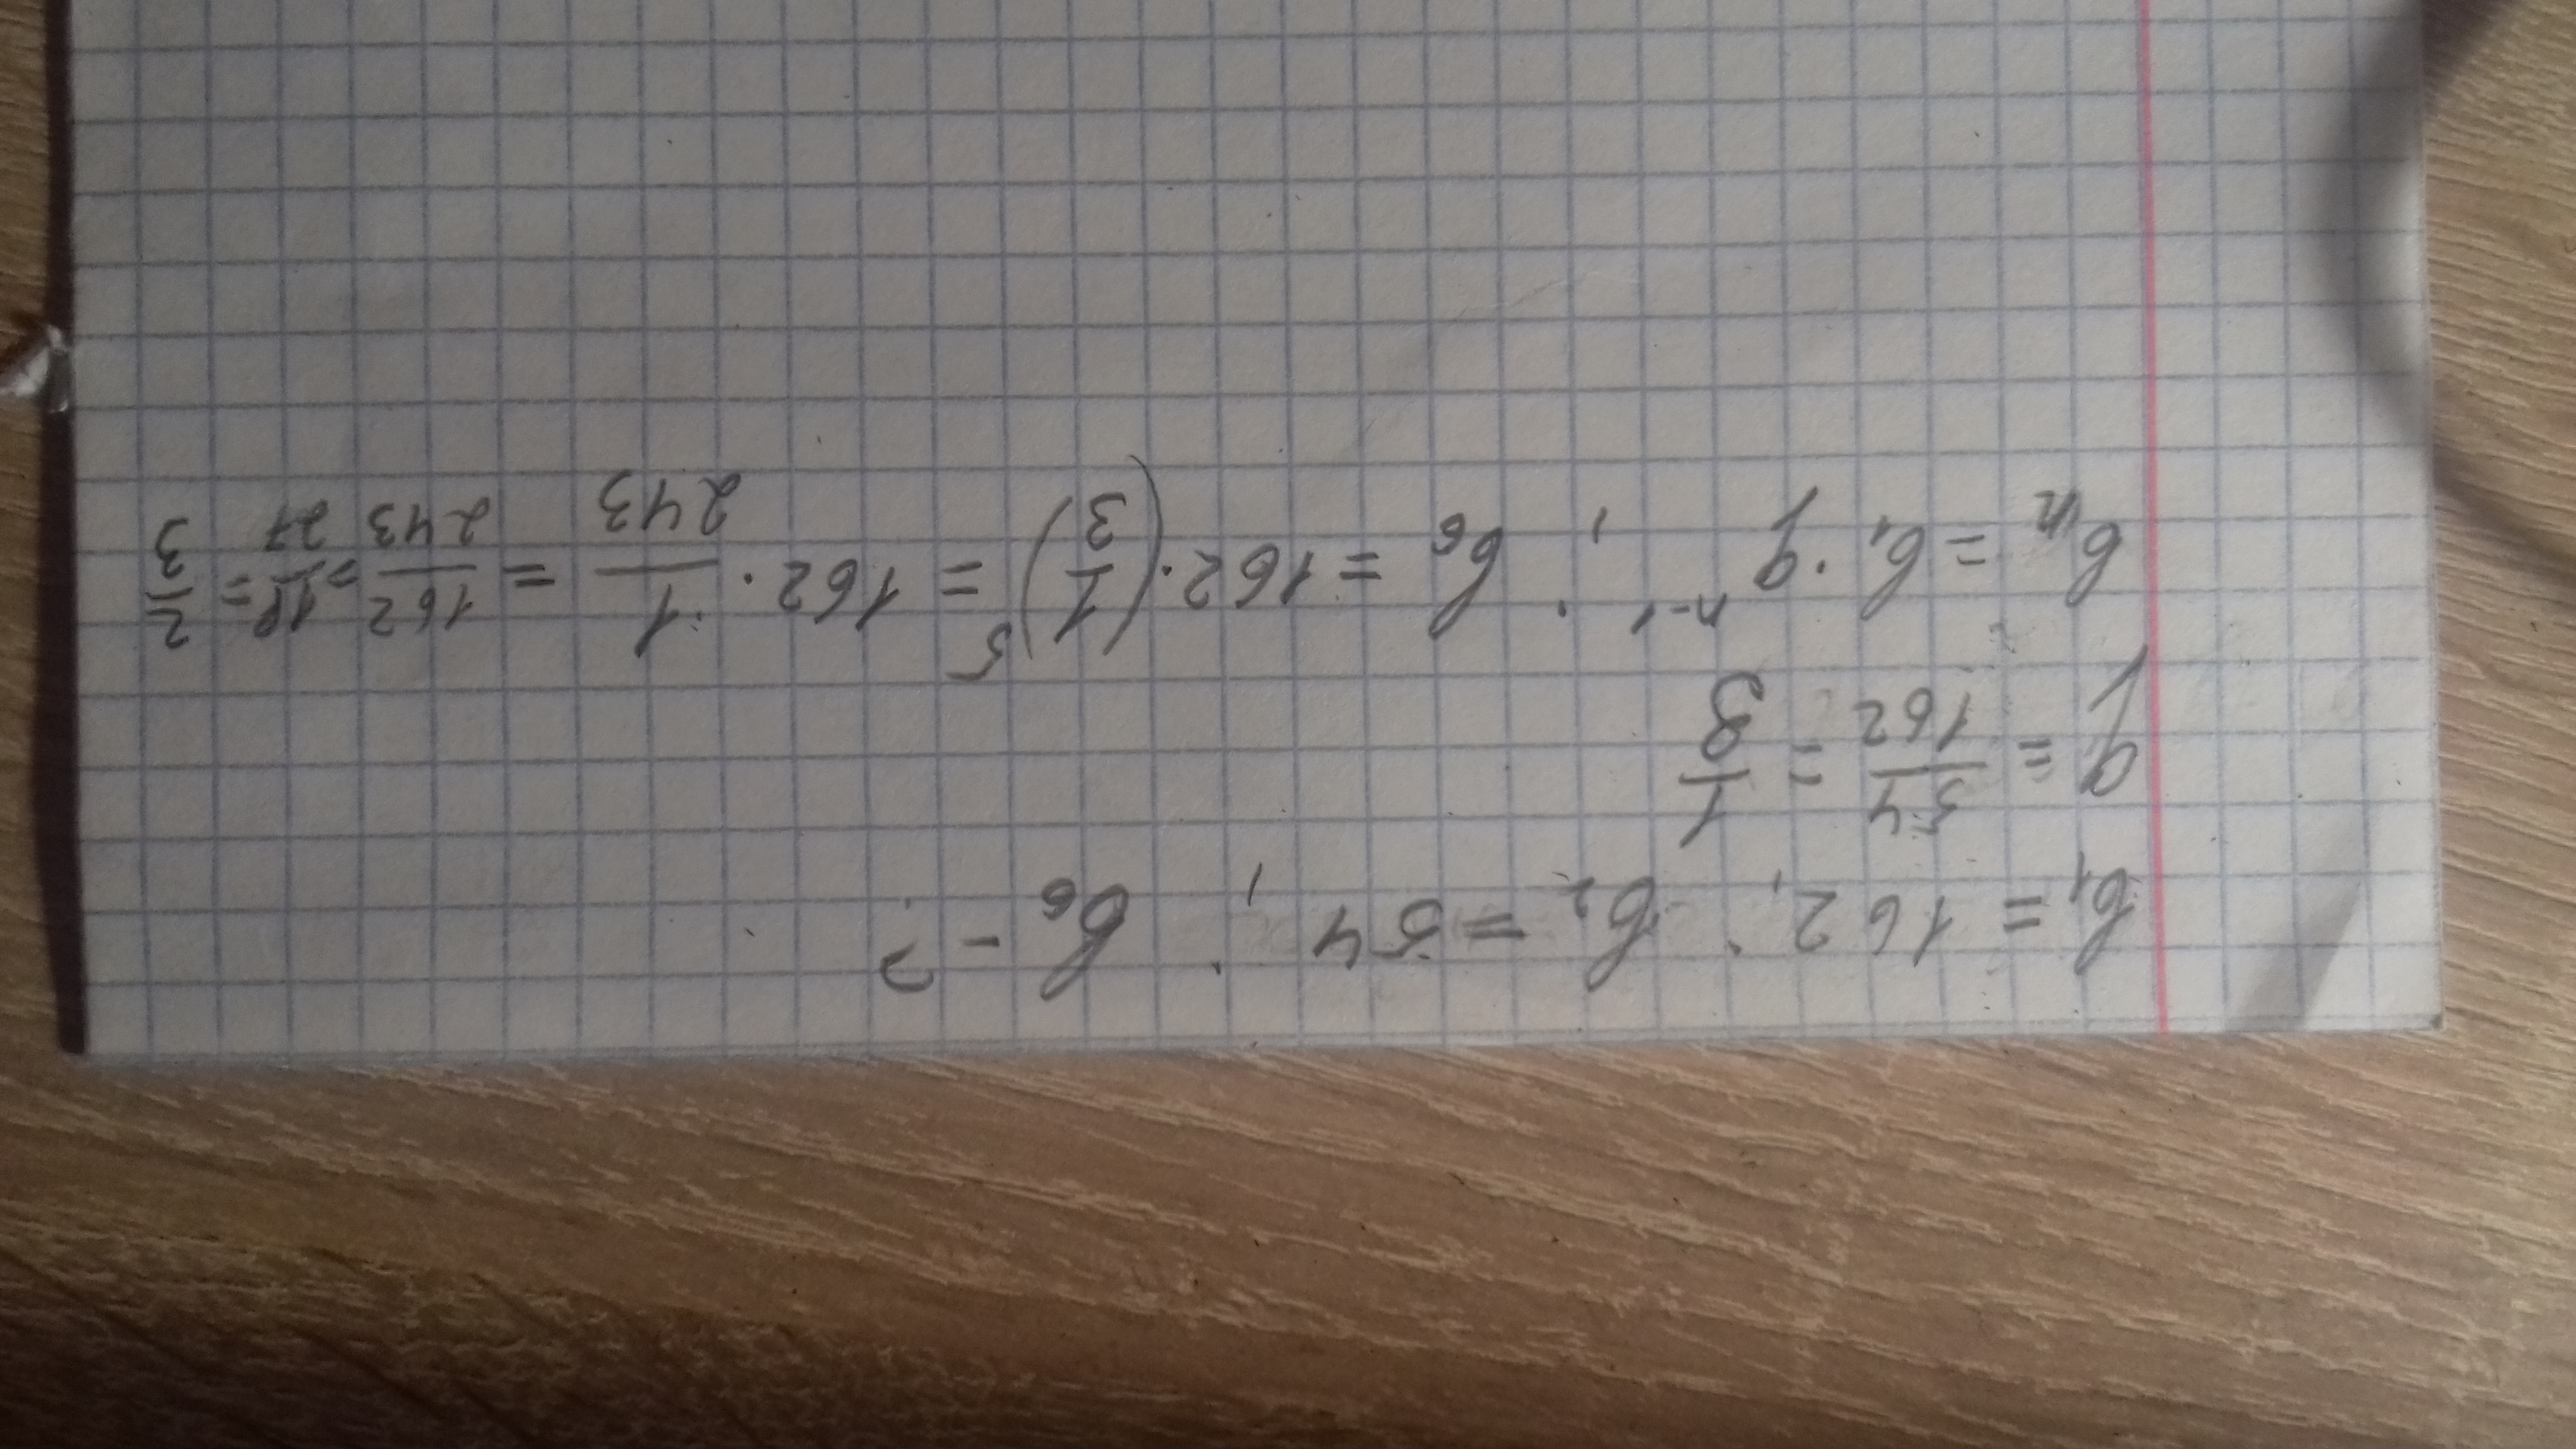 b₁ = 162; b₂ = 54; b₆ - ?
q = 54/162 = 1/3
bₙ = b₁ · qⁿ⁻¹; b₆ = 162 · (1/3)⁵ = 162 · 1/243 = 162/243 = 18/27 = 2/3